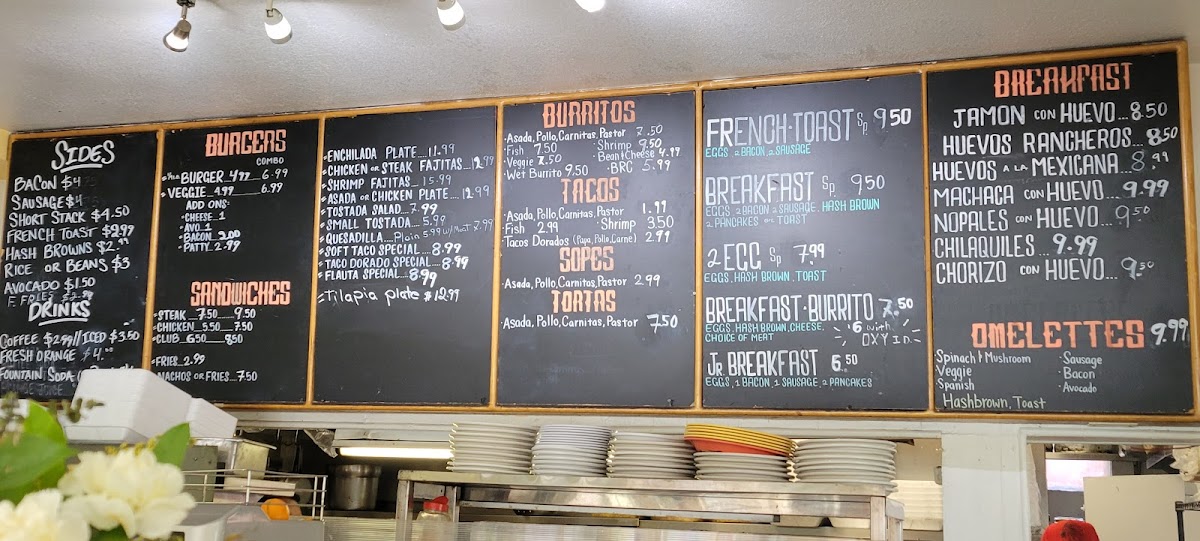 SIDES
BACON $4
SAUSAGE $4
SHORT STACK $4.50
FRENCH TOAST $2.99
HASH BROWNS $2.99
RICE OR BEANS $3
AVOCADO $1.50
F. FRIES $2.99
DRINKS
COFFEE $2.99//ICED $3.50
FRESH ORANGE $4.00
FOUNTAIN SODA
BURGERS
COMBO
BURGER 4.99 6.99
VEGGIE 4.99 6.99
ADD ONS:
CHEESE..1
AVO..1
BACON..2.00
PATTY..2.99
SANDWICHES
STEAK..7.50....9.50
CHICKEN..5.50...7.50
CLUB..6.50....8.50
FRIES..2.99
NACHOS OR FRIES...7.50
ENCHILADA PLATE...11.99
CHICKEN OR STEAK FAJITAS...12.99
SHRIMP FAJITAS...15.99
ASADA OR CHICKEN PLATE....12.99
TOSTADA SALAD...7.99
SMALL TOSTADA...5.99
QUESADILLA....Plain 5.99 w/Meat 8.99
SOFT TACO SPECIAL...8.99
TACO DORADO SPECIAL...8.99
FLAUTA SPECIAL...8.99
Tilapia plate $12.99
BURRITOS
Asada, Pollo, Carnitas, Pastor 7.50
Fish 7.50 Shrimp 9.50
Veggie 7.50 Bean & Cheese 4.99
Wet Burrito 9.50 BRC 5.99
TACOS
Asada, Pollo, Carnitas, Pastor 1.99
Fish 2.99 Shrimp 3.50
Tacos Dorados (Papa, Pollo, Carne) 2.99
SOPES
Asada, Pollo, Carnitas, Pastor 2.99
TORTAS
Asada, Pollo, Carnitas, Pastor 7.50
FRENCH·TOAST Sp 9.50
EGGS, 2 BACON, 2 SAUSAGE
BREAKFAST Sp 9.50
EGGS 2 BACON 2 SAUSAGE, HASH BROWN
2 PANCAKES OR TOAST
2 EGG Sp 7.99
EGGS, HASH BROWN, TOAST
BREAKFAST·BURRITO 7.50
EGGS, HASH BROWN, CHEESE,
CHOICE OF MEAT
Jr. BREAKFAST 6.50
EGGS, 1 BACON, 1 SAUSAGE, 2 PANCAKES
BREAKFAST
JAMON CON HUEVO...8.50
HUEVOS RANCHEROS...8.50
HUEVOS A LA MEXICANA...8.99
MACHACA CON HUEVO...9.99
NOPALES CON HUEVO...9.50
CHILAQUILES 9.99
CHORIZO CON HUEVO...9.50
OMELETTES 9.99
Spinach & Mushroom · Sausage
Veggie · Bacon
Spanish · Avocado
Hashbrown, Toast